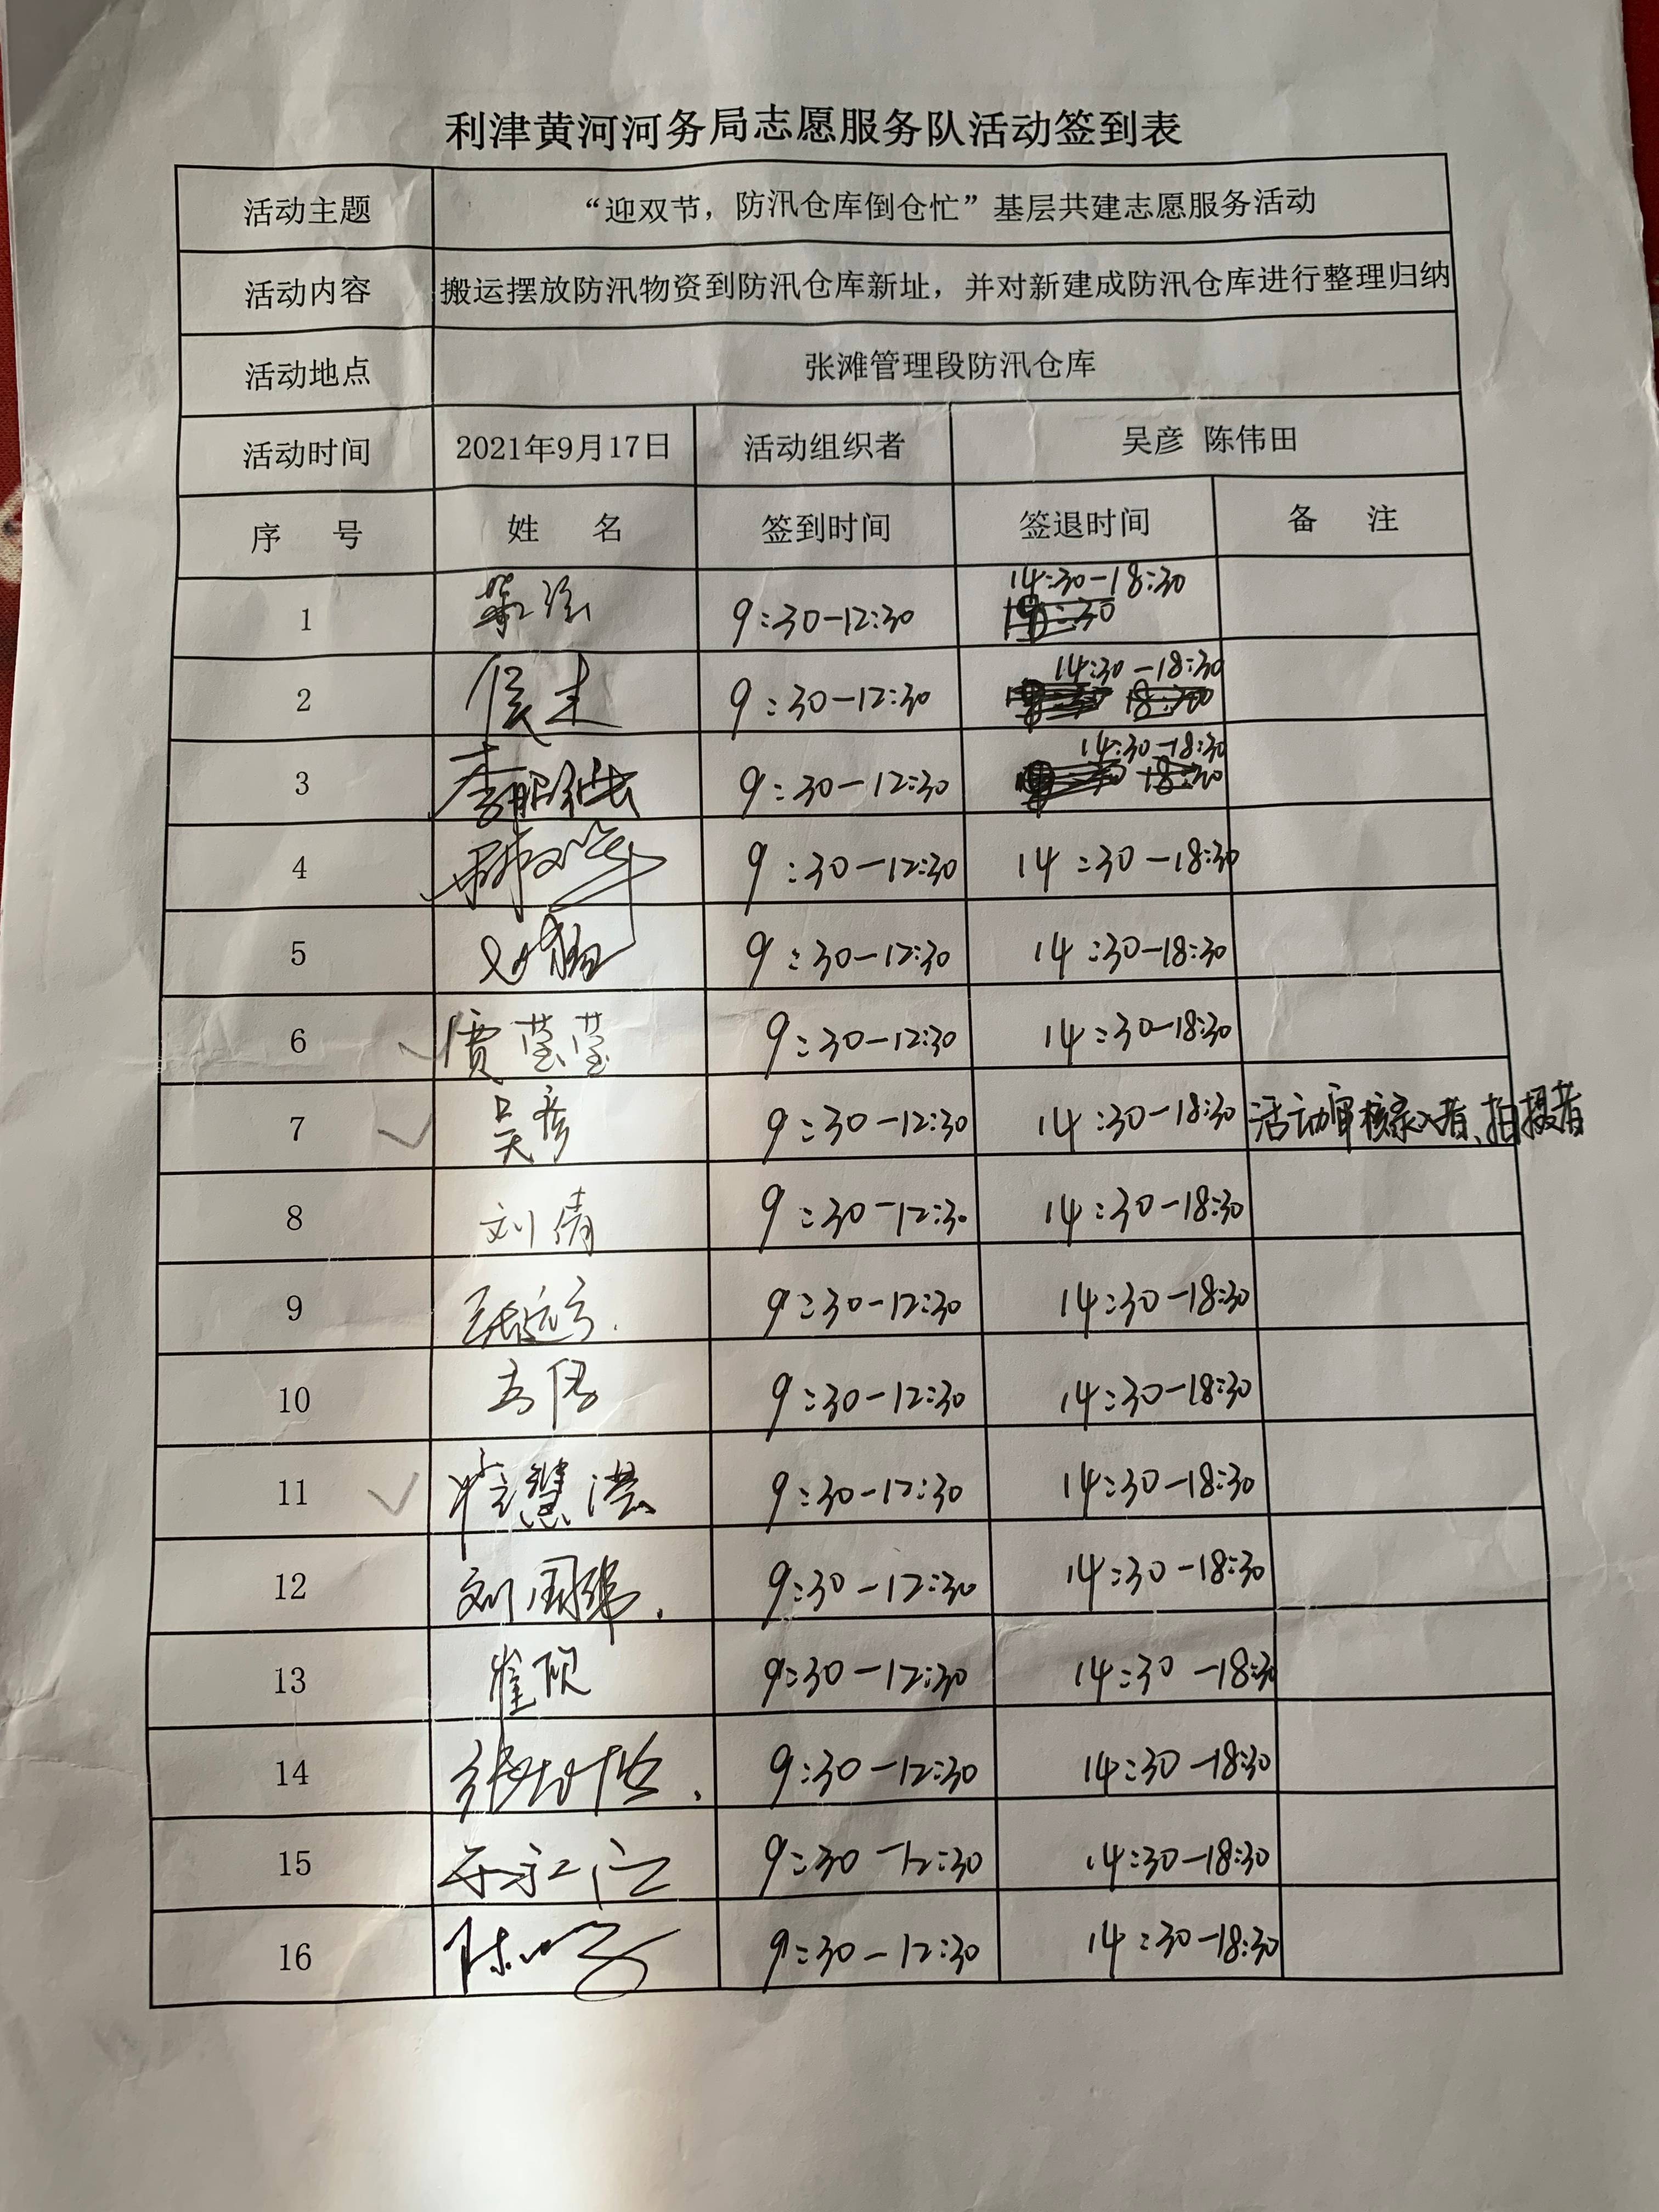 利津黄河河务局志愿服务队活动签到表
活动主题 “迎双节，防汛仓库倒仓忙”基层共建志愿服务活动
活动内容 搬运摆放防汛物资到防汛仓库新址，并对新建成防汛仓库进行整理归纳
活动地点 张滩管理段防汛仓库
活动时间 2021年9月17日 活动组织者 吴彦 陈伟田
序号 姓名 签到时间 签退时间 备注
1 9:30-12:30 14:30-18:30
2 9:30-12:30 14:30-18:30
3 9:30-12:30 14:30-18:30
4 9:30-12:30 14:30-18:30
5 9:30-12:30 14:30-18:30
6 贾莹莹 9:30-12:30 14:30-18:30
7 吴彦 9:30-12:30 14:30-18:30 活动审核录入者、拍摄者
8 刘倩 9:30-12:30 14:30-18:30
9 9:30-12:30 14:30-18:30
10 9:30-12:30 14:30-18:30
11 9:30-12:30 14:30-18:30
12 刘国 9:30-12:30 14:30-18:30
13 崔硕 9:30-12:30 14:30-18:30
14 9:30-12:30 14:30-18:30
15 9:30-12:30 14:30-18:30
16 9:30-12:30 14:30-18:30